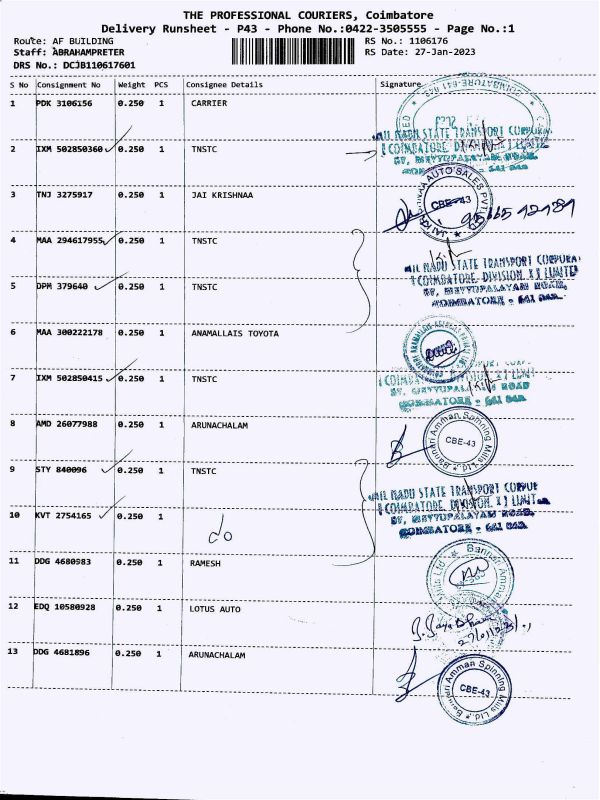 THE PROFESSIONAL COURIERS, Coimbatore
Delivery Runsheet - P43 - Phone No.:0422-3505555 - Page No.:1
Route: AF BUILDING
RS No.: 1106176
Staff: ABRAHAMPRETER
RS Date: 27-Jan-2023
DRS No.: DCJB110617601
S No Consignment No Weight PCS Consignee Details Signature
1 PDK 3106156 0.250 1 CARRIER
2 IXM 502850360 0.250 1 TNSTC
COIMBATORE
3 TNJ 3275917 0.250 1 JAI KRISHNAA
CBE-43
4 MAA 294617955 0.250 1 TNSTC
STATE TRANSPORT
COIMBATORE DIVISION
5 DPM 379640 0.250 1 TNSTC
METTUPALAYAM ROAD,
COIMBATORE - 641
6 MAA 300222178 0.250 1 ANAMALLAIS TOYOTA
7 IXM 502850415 0.250 1 TNSTC
ROAD
COIMBATORE - 641
8 AMD 26077988 0.250 1 ARUNACHALAM
Bannari Amman Spinning Mills Ltd.
CBE-43
9 STY 840096 0.250 1 TNSTC
STATE TRANSPORT
COIMBATORE DIVISION
10 KVT 2754165 0.250 1 do
METTUPALAYAM ROAD.
COIMBATORE - 641
11 DDG 4680983 0.250 1 RAMESH
Bannari Amman
12 EDQ 10580928 0.250 1 LOTUS AUTO
13 DDG 4681896 0.250 1 ARUNACHALAM
Bannari Amman Spinning Mills Ltd.
CBE-43